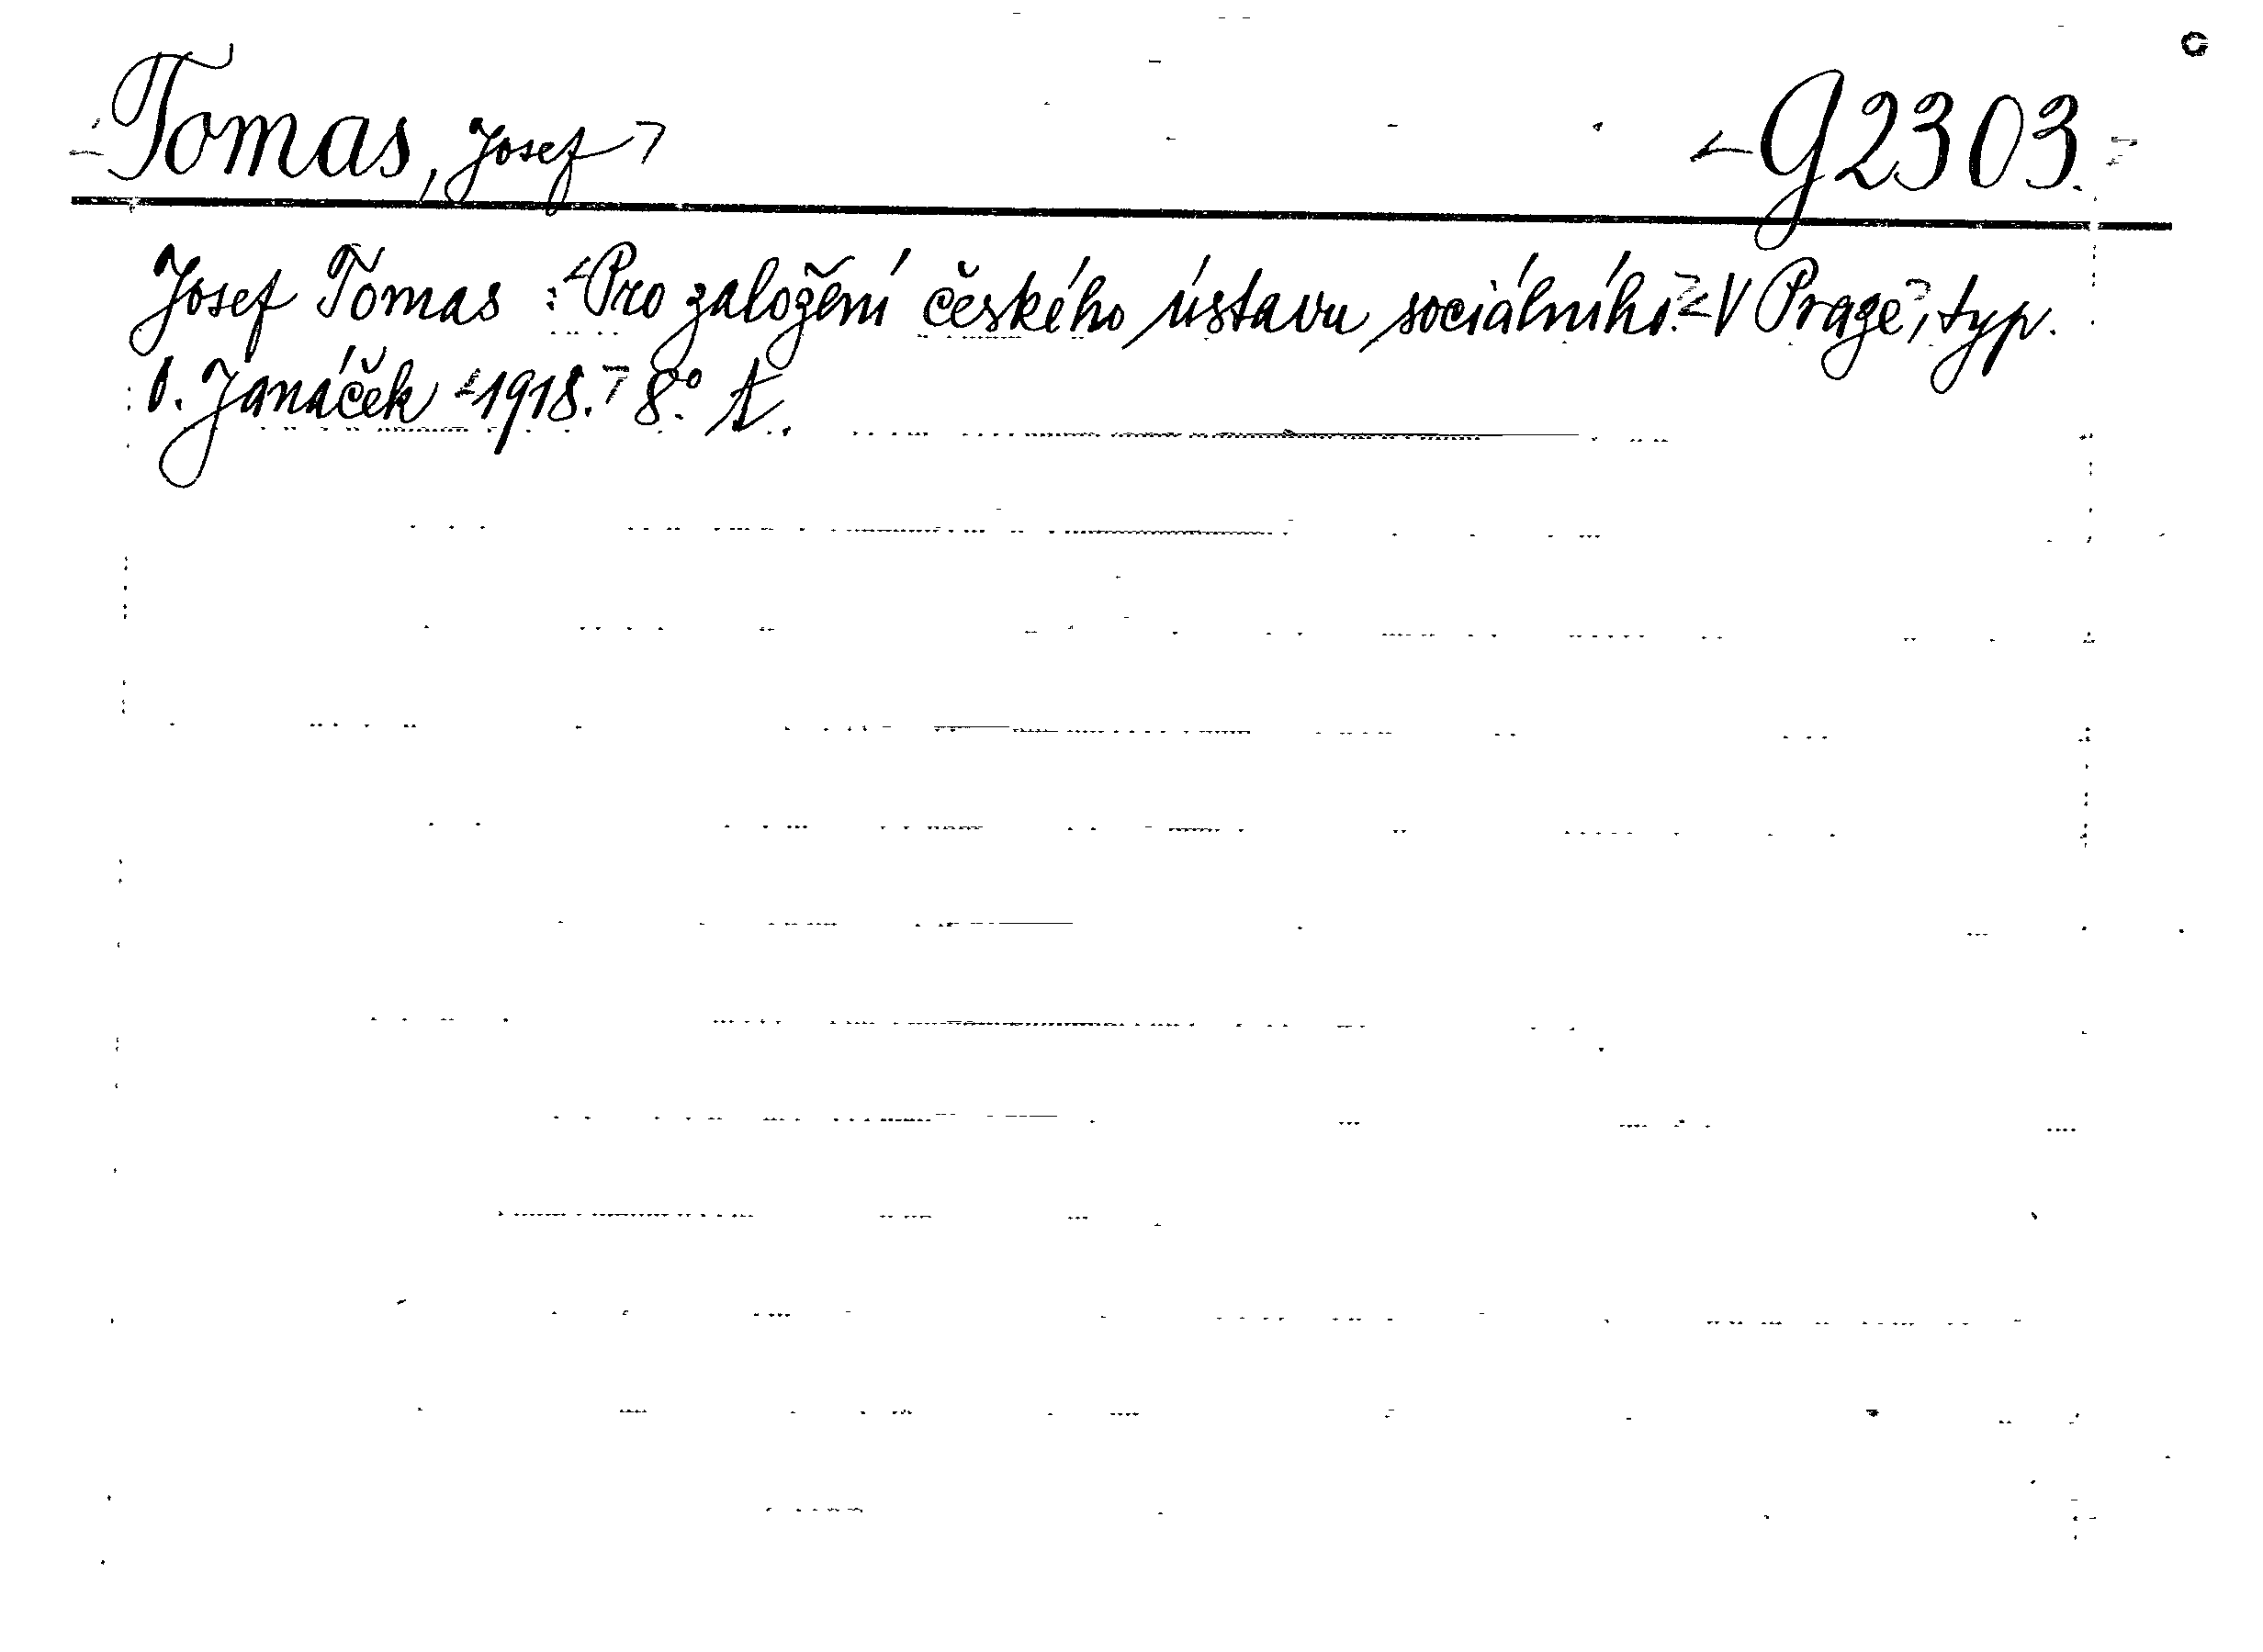 Tomas, Josef
G 2303.
Josef Tomas : Pro založení českého ústavu sociálního. V Praze, typ.
O. Janáček 1918. 8.° A.